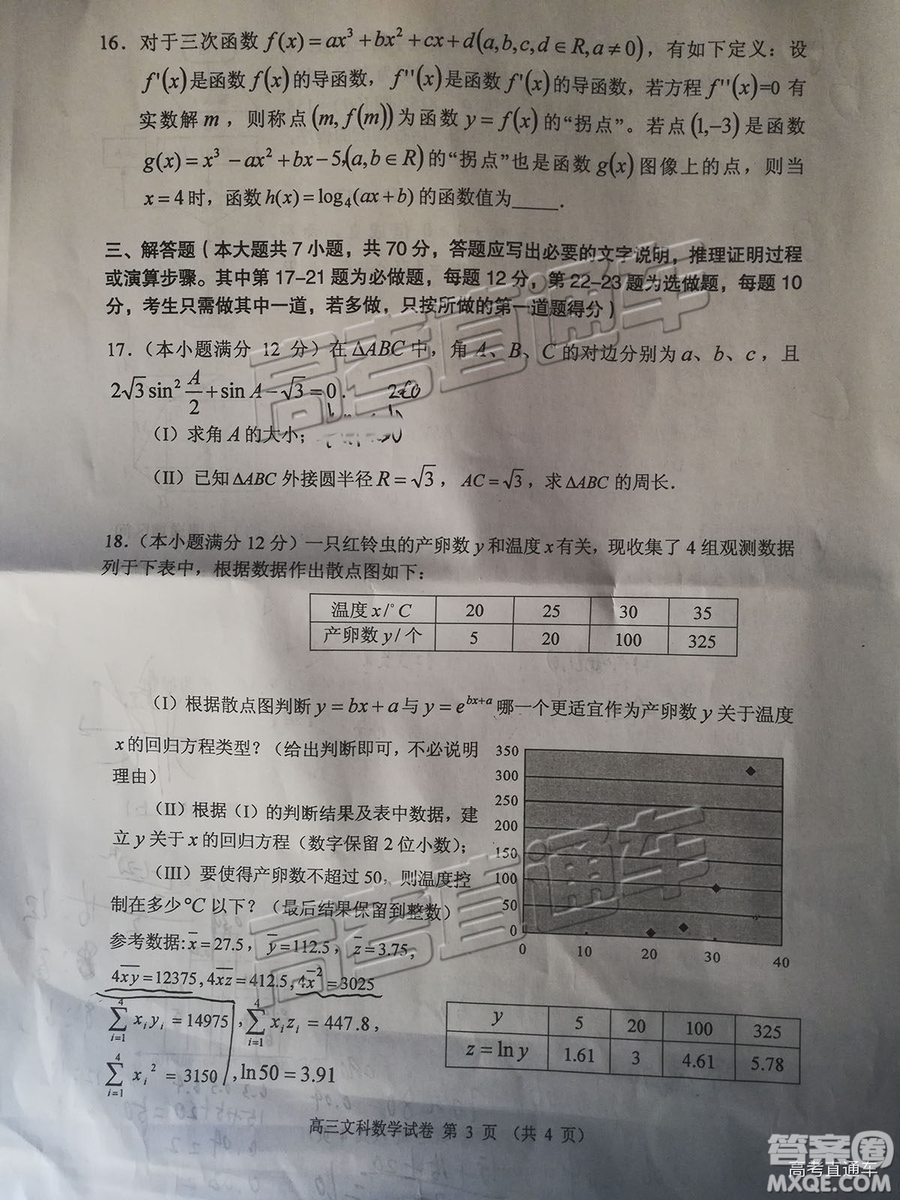 16．对于三次函数 f(x)=ax³+bx²+cx+d(a,b,c,d∈R,a≠0)，有如下定义：设
f'(x)是函数f(x)的导函数，f''(x)是函数f'(x)的导函数，若方程f''(x)=0 有
实数解m，则称点(m,f(m))为函数y=f(x)的“拐点”。若点(1,-3)是函数
g(x)=x³-ax²+bx-5,(a,b∈R)的“拐点”也是函数g(x)图像上的点，则当
x=4时，函数h(x)=log₄(ax+b)的函数值为_____.
三、解答题（本大题共7小题，共70分，答题应写出必要的文字说明，推理证明过程
或演算步骤。其中第17-21题为必做题，每题12分，第22-23题为选做题，每题10
分，考生只需做其中一道，若多做，只按所做的第一道题得分）
17．（本小题满分 12 分）在ΔABC中，角A、B、C的对边分别为a、b、c，且
2√3sin²A/2+sin A-√3=0.
（I）求角A的大小；
（II）已知ΔABC外接圆半径R=√3，AC=√3，求ΔABC的周长.
18．（本小题满分12分）一只红铃虫的产卵数y和温度x有关，现收集了4组观测数据
列于下表中，根据数据作出散点图如下：
温度x/°C 20 25 30 35
产卵数y/个 5 20 100 325
（I）根据散点图判断y=bx+a与y=e^{bx+a}哪一个更适宜作为产卵数y关于温度
x的回归方程类型？（给出判断即可，不必说明
理由）
（II）根据（I）的判断结果及表中数据，建
立y关于x的回归方程（数字保留2位小数）；
（III）要使得产卵数不超过50，则温度控
制在多少°C以下？（最后结果保留到整数）
参考数据:x̄=27.5，ȳ=112.5，z̄=3.75,
4x̄ȳ=12375,4x̄z̄=412.5,4x̄²=3025
∑_{i=1}^{4}x_iy_i=14975,∑_{i=1}^{4}x_iz_i=447.8,
∑_{i=1}^{4}x_i²=3150,ln50=3.91
350
300
250
200
150
100
50
0
0 10 20 30 40
y 5 20 100 325
z=lny 1.61 3 4.61 5.78
高三文科数学试卷 第 3 页 （共 4 页）
高考直通车
高考直通车
答案圈
高考直通车
MXQE.COM